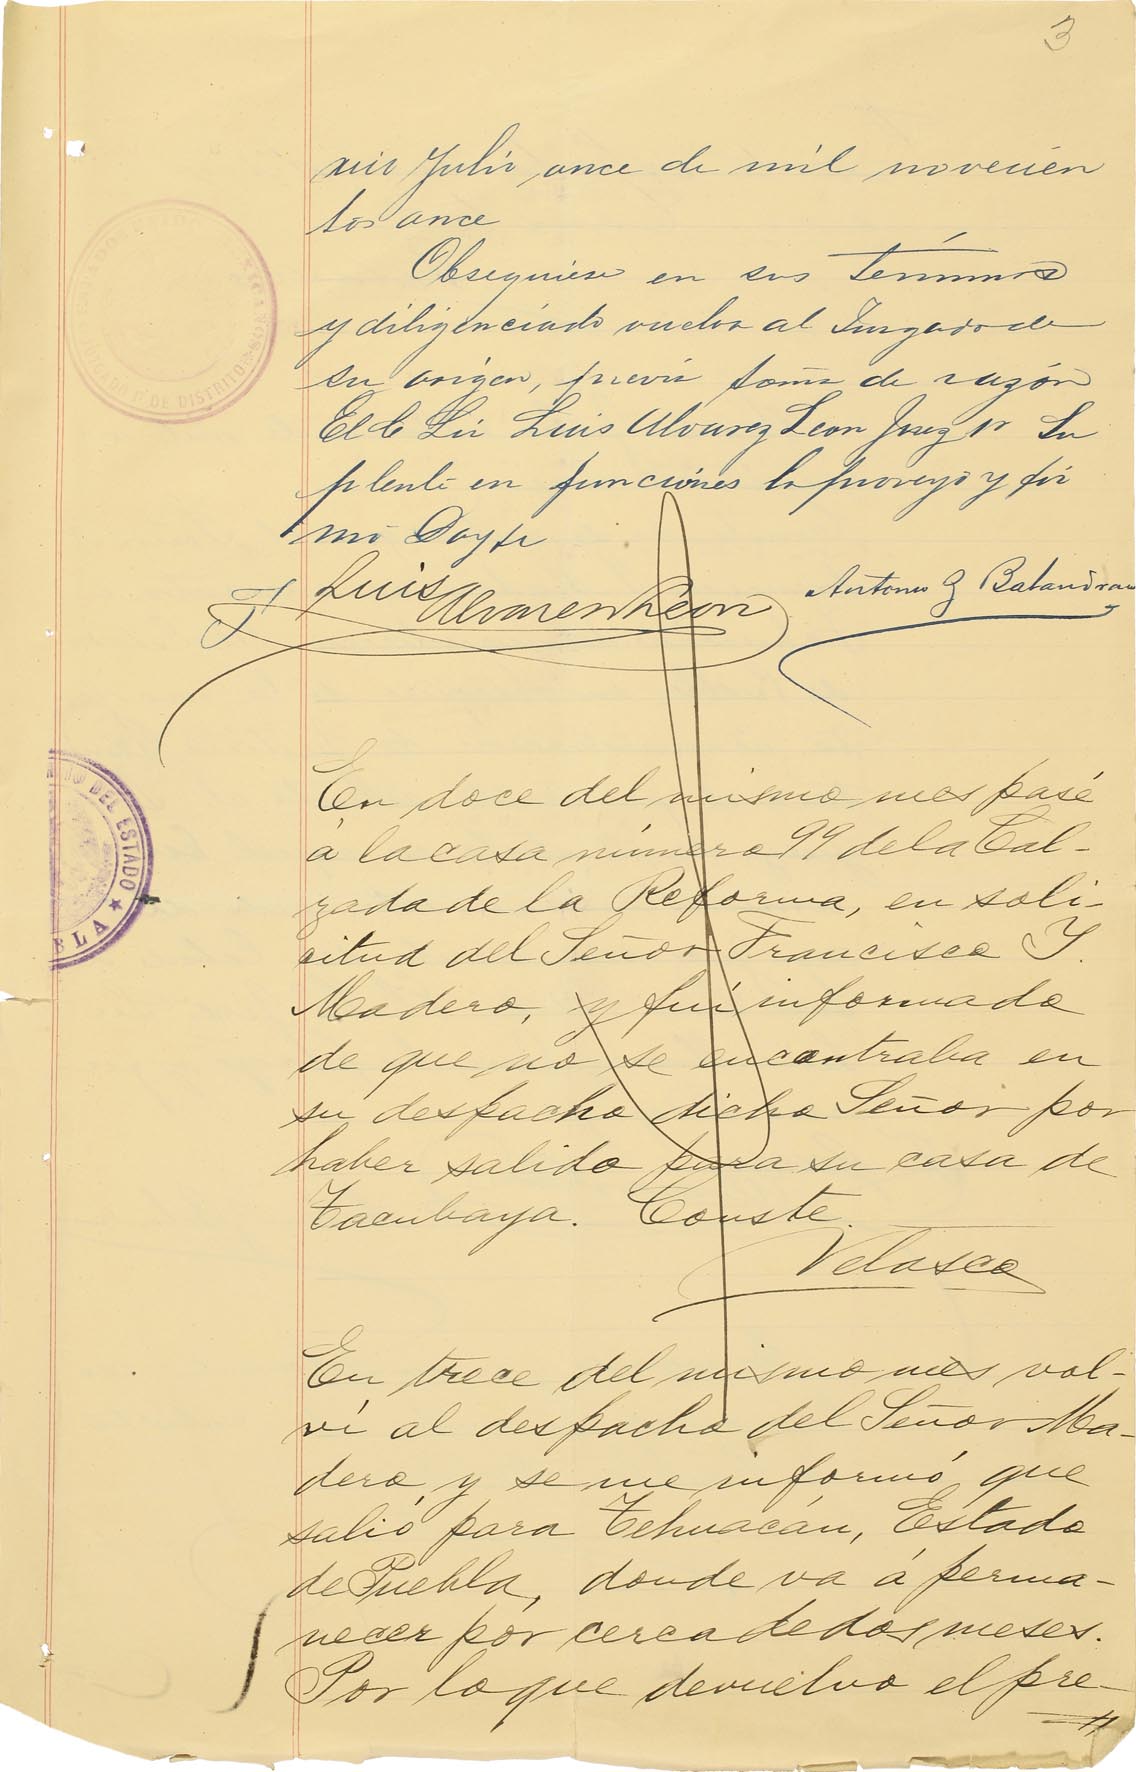 3
xico Julio once de mil novecien
tos once
Obsequiese en sus términos
y diligenciado vuelva al Juzgado de
su origen, previa toma de razón
El C Lic Luis Alvarez Leon Juez 1º Su
plente en funciones lo proveyó y fir
mó Doy fe
Luis Alvarez Leon
Antonio G Balandrano
En doce del mismo mes pasé
á la casa número 99 de la Cal-
zada de la Reforma, en soli-
citud del Señor Francisco Y.
Madero, y fuí informado
de que no se encontraba en
su despacho dicho Señor por
haber salido para su casa de
Tacubaya. Conste.
Velasco
En trece del mismo mes vol-
ví al despacho del Señor Ma-
dero, y se me informó que
salió para Tehuacán, Estado
de Puebla, donde va á perma-
necer por cerca de dos meses.
Por lo que devuelvo el pre-
JUZGADO 1º DE DISTRITO
DEL ESTADO
★